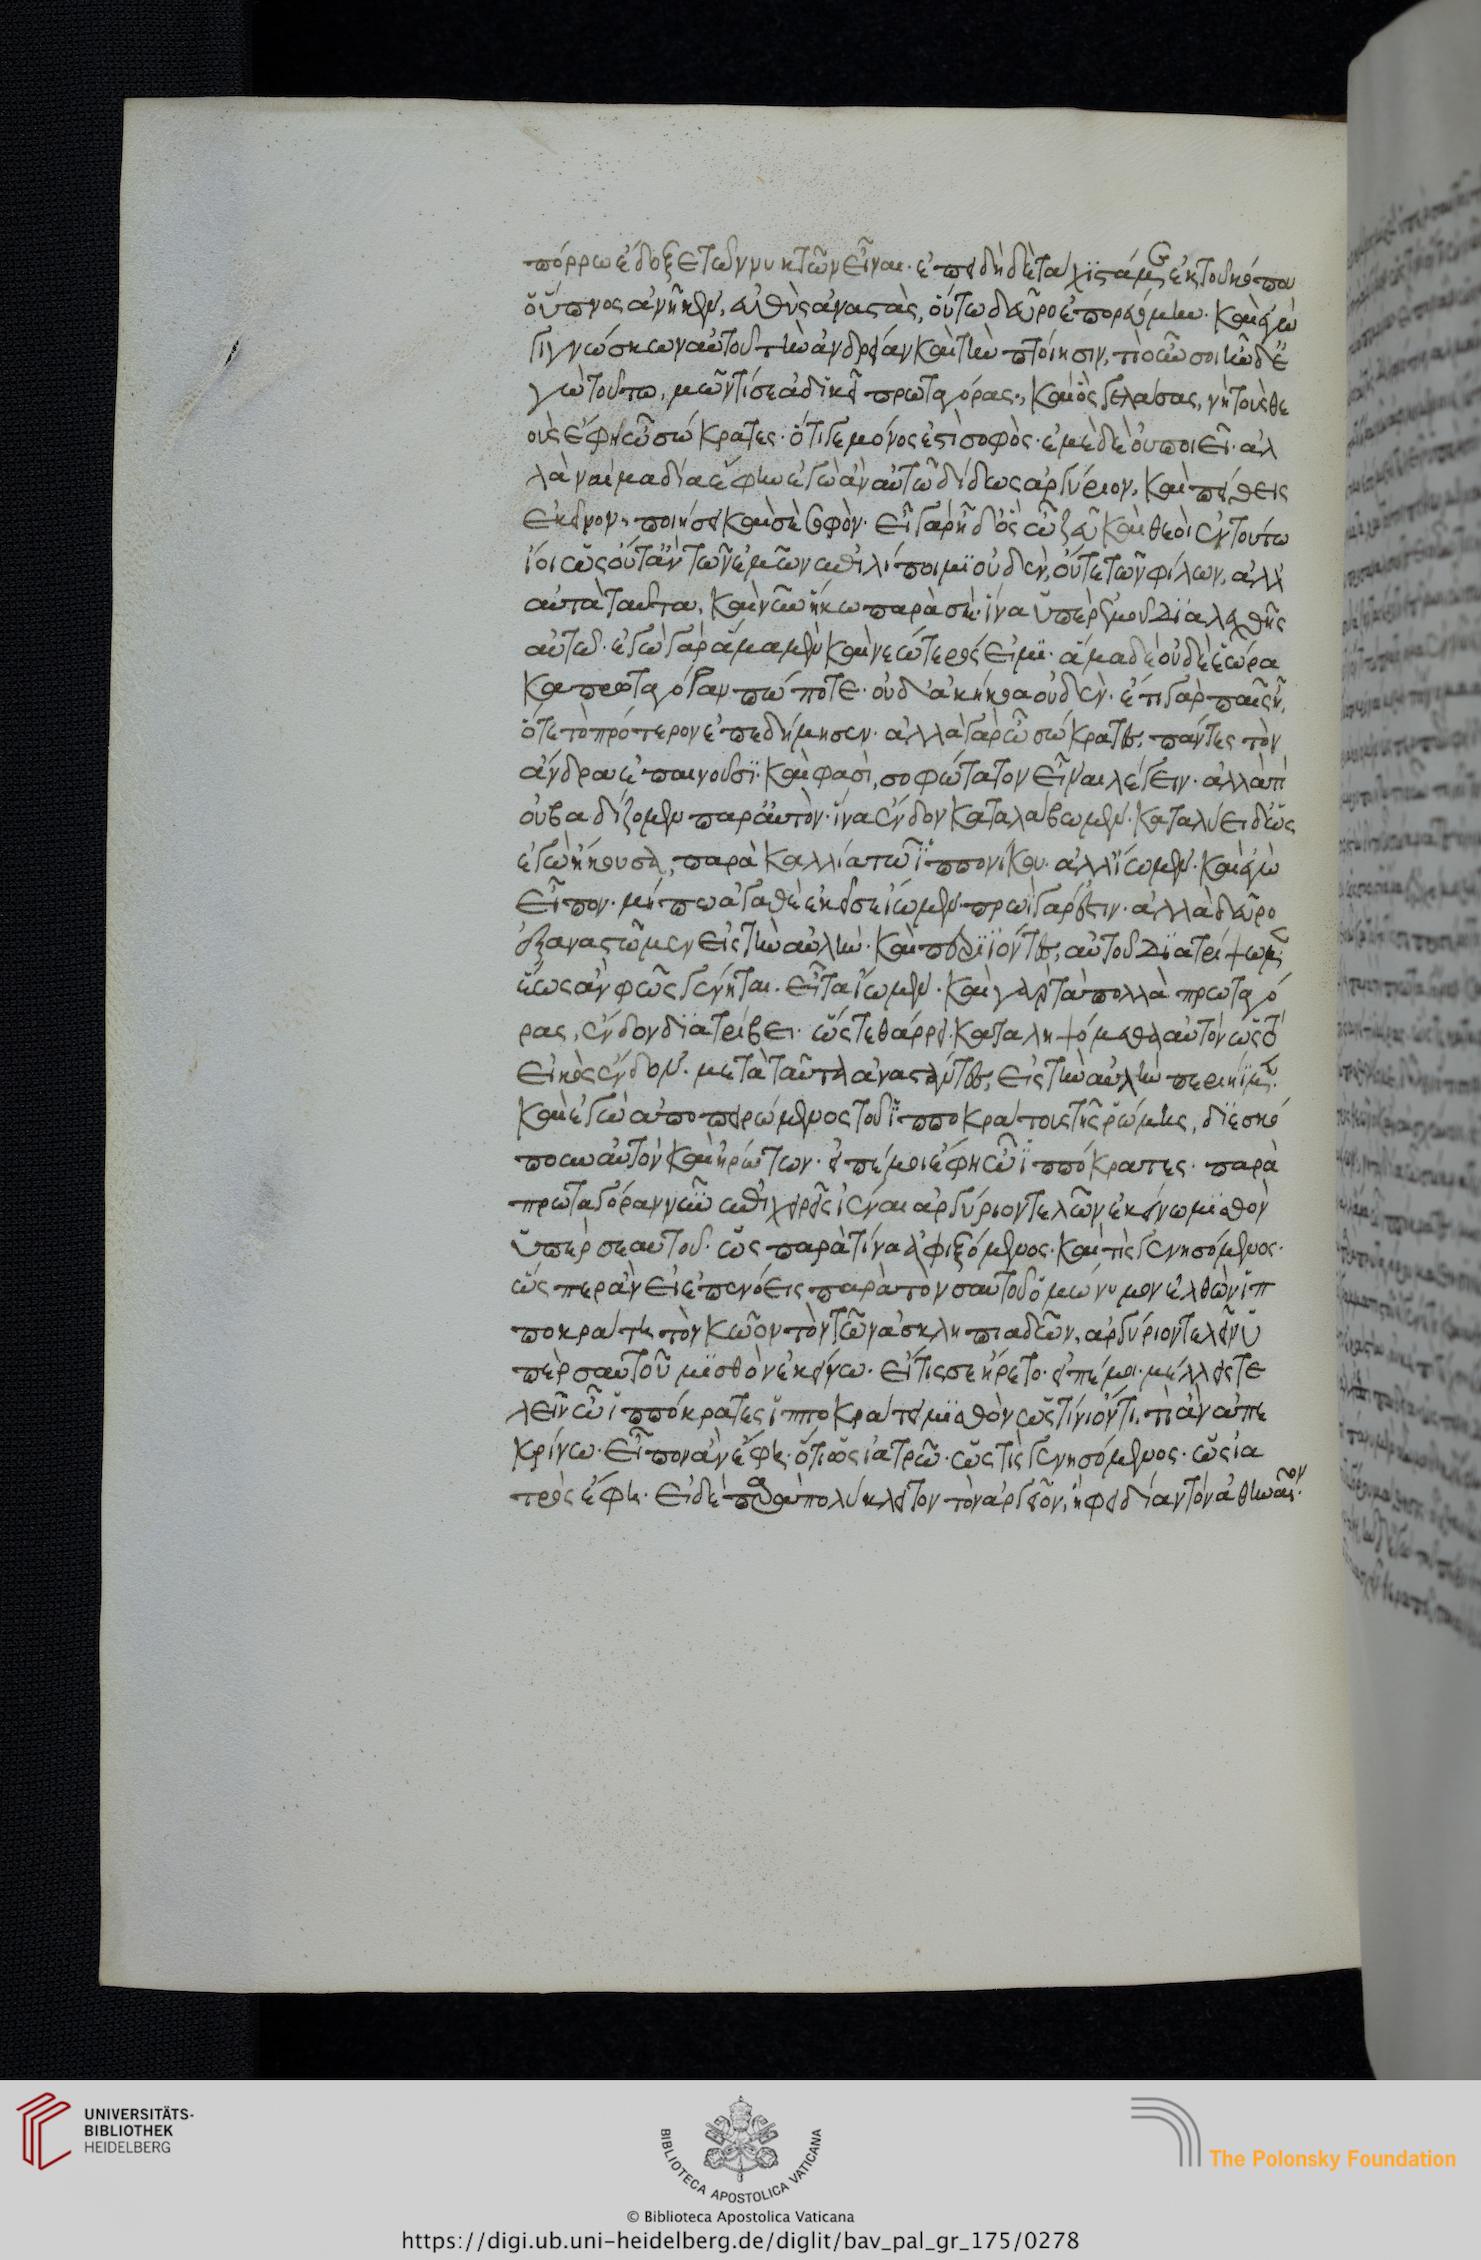 πόρρω ἔδοξε τῶν νυκτῶν εἶναι. ἐπειδὴ δὲ τάχιστά με ἐκ τοῦ κόπου
ὁ ὕπνος ἀνῆκεν, εὐθὺς ἀναστὰς, οὕτω δεῦρο ἐπορευόμην. καὶ ἐγὼ
γιγνώσκων αὐτοῦ τὴν ἀνδρείαν καὶ τὴν πτοίησιν, τί οὖν σοι ἦν δ' ἐ
γὼ τοῦτο, μῶν τί σε ἀδικεῖ πρωταγόρας, καὶ ὃς γελάσας, νὴ τοὺς θε
οὺς ἔφη ὦ σώκρατες. ὅτι γε μόνος ἐστὶ σοφὸς. ἐμὲ δὲ οὐ ποιεῖ. ἀλ
λὰ ναὶ μὰ δία ἔφην ἐγὼ ἂν αὐτῶ διδῶς ἀργύριον, καὶ πείθεις
ἐκεῖνον, ποιήσει καὶ σὲ σοφὸν. εἰ γὰρ ἦ δ' ὃς ὦ ζεῦ καὶ θεοὶ ἐν τούτω
εἴη ὡς οὔτ' ἂν τῶν ἐμῶν ἐπιλίποιμι οὐδὲν, οὔτε τῶν φίλων, ἀλλ'
αὐτὰ ταῦτα, καὶ νῦν ἥκω παρὰ σὲ. ἵνα ὑπὲρ ἐμοῦ διαλεχθῆς
αὐτῶ. ἐγὼ γὰρ ἅμα μὲν καὶ νεώτερός εἰμι. ἅμα δὲ οὐδὲ ἑώρα
κα πρωταγόραν πώποτε. οὐδ' ἀκήκοα οὐδὲν. ἔτι γὰρ παῖς ἦ,
ὅτε τὸ πρότερον ἐπεδήμησεν. ἀλλὰ γὰρ ὦ σώκρατες, πάντες τὸν
ἄνδρα ἐπαινοῦσι. καὶ φασὶ, σοφώτατον εἶναι λέγειν. ἀλλὰ τί
οὐ βαδίζομεν παρ' αὐτὸν. ἵνα ἔνδον καταλάβωμεν. καταλύει δ' ὡς
ἐγὼ ἤκουσα, παρὰ καλλία τῶ ἱππονίκου. ἀλλ' ἴωμεν. καὶ ἐγὼ
εἶπον. μήπω ἀγαθὲ ἐκεῖσε ἴωμεν. πρωὶ γάρ ἐστιν. ἀλλὰ δεῦρο
ἐξαναστῶμεν εἰς τὴν αὐλὴν. καὶ περιιόντες, αὐτοῦ διατρίψωμεν
ἕως ἂν φῶς γένηται. εἶτα ἴωμεν. καὶ γὰρ τὰ πολλὰ πρωταγό
ρας, ἔνδον διατρίβει. ὥστε θάρρει. καταληψόμεθα αὐτόν ὡς τὸ
εἰκὸς ἔνδον. μετὰ ταῦτα ἀναστάντες, εἰς τὴν αὐλὴν περιῆμεν.
καὶ ἐγὼ ἀποπειρώμενος τοῦ ἱπποκράτους τῆς ῥώμης, διεσκό
πουν αὐτὸν καὶ ἠρώτων. εἰπέ μοι ἔφη ὦ ἱππόκρατες. παρὰ
πρωταγόραν νῦν ἐπιχειρεῖς ἰέναι ἀργύριον τελῶν ἐκείνω μισθὸν
ὑπὲρ σεαυτοῦ. ὡς παρὰ τίνα ἀφιξόμενος. καὶ τίς γενησόμενος.
ὥσπερ ἂν εἰ ἐπενόεις παρὰ τὸν σαυτοῦ ὁμώνυμον ἐλθὼν ἱπ
ποκράτη τὸν κῶον τὸν τῶν ἀσκληπιαδῶν, ἀργύριον τελεῖν ὑ
πὲρ σαυτοῦ μισθὸν ἐκείνω. εἴ τις σε ἤρετο. εἰπέ μοι. μέλλεις τε
λεῖν ὦ ἱππόκρατες ἱπποκράτει μισθὸν ὡς τίνι ὄντι, τί ἂν ἀπε
κρίνω. εἶπον ἂν ἔφη. ὅτι ὡς ἰατρῶ. ὡς τίς γενησόμενος. ὡς ἰα
τρὸς ἔφη. εἰ δὲ παρὰ πολύκλειτον τὸν ἀργεῖον, ἢ φειδίαν τὸν ἀθηναῖον.
UNIVERSITÄTS-
BIBLIOTHEK
HEIDELBERG
BIBLIOTECA APOSTOLICA VATICANA
The Polonsky Foundation
© Biblioteca Apostolica Vaticana
https://digi.ub.uni-heidelberg.de/diglit/bav_pal_gr_175/0278